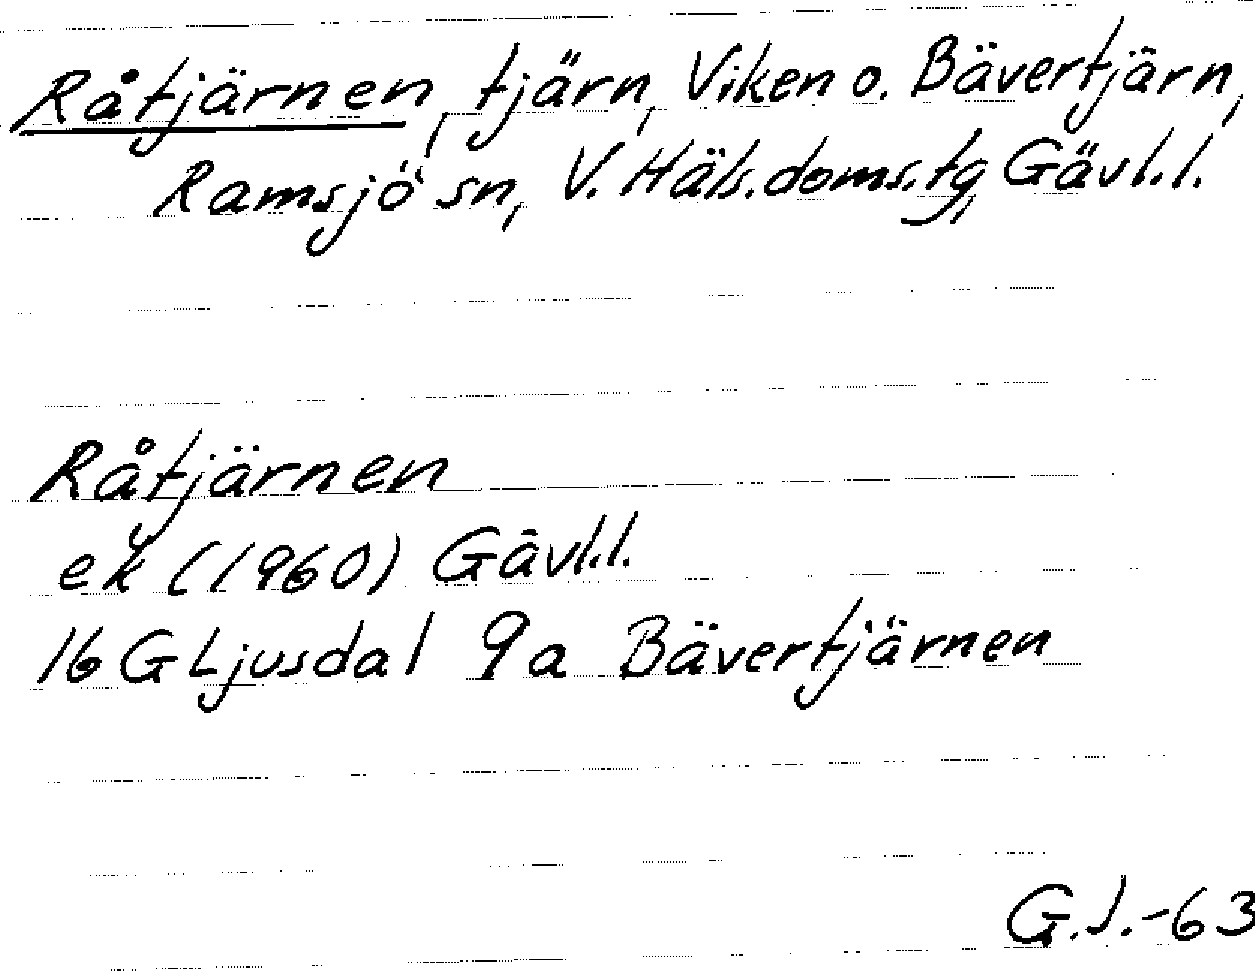 Råtjärnen, tjärn, Viken o. Bävertjärn,
Ramsjö sn, V. Häls. doms. tg, Gävl. l.
Råtjärnen
ek (1960) Gävl. l.
16 G Ljusdal 9a Bävertjärnen
G.J.-63